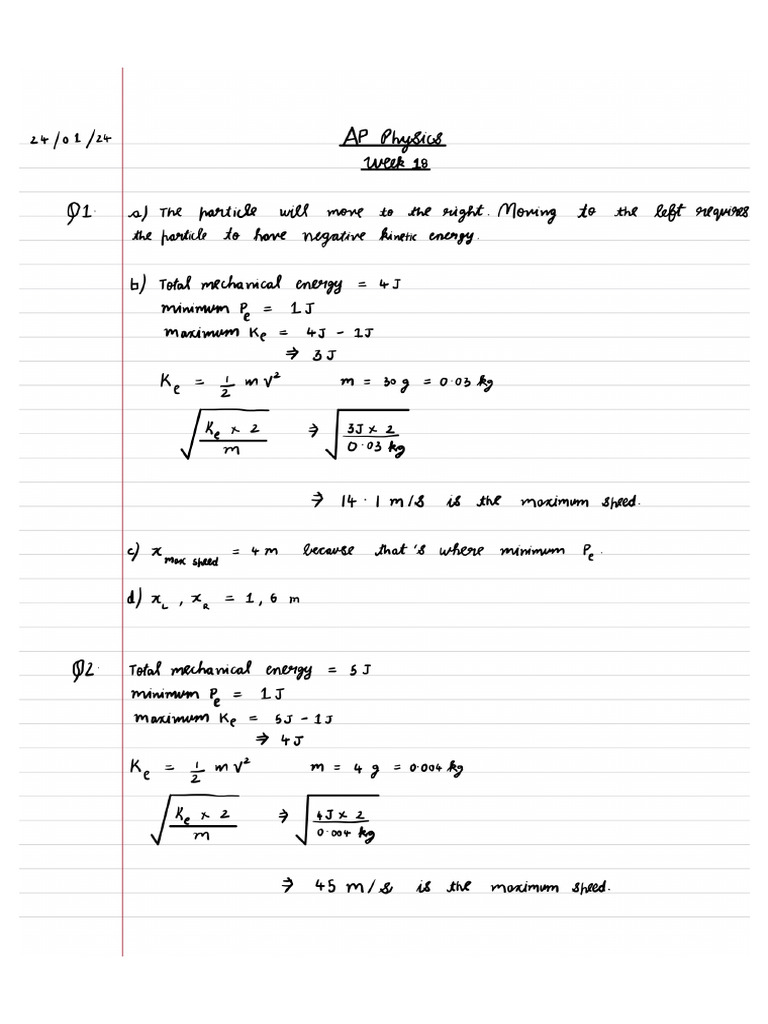 24/01/24
AP Physics
Week 18
Q1. a) The particle will move to the right. Moving to the left requires
the particle to have negative kinetic energy.
b) Total mechanical energy = 4J
minimum Pₑ = 1J
maximum Kₑ = 4J - 1J
⇒ 3J
Kₑ = 1/2 m v² m = 30 g = 0.03 kg
√(Kₑ × 2 / m) ⇒ √(3J × 2 / 0.03 kg)
⇒ 14.1 m/s is the maximum speed.
c) x max speed = 4m because that's where minimum Pₑ.
d) x_L, x_R = 1, 6 m
Q2. Total mechanical energy = 5J
minimum Pₑ = 1J
maximum Kₑ = 5J - 1J
⇒ 4J
Kₑ = 1/2 m v² m = 4 g = 0.004 kg
√(Kₑ × 2 / m) ⇒ √(4J × 2 / 0.004 kg)
⇒ 45 m/s is the maximum speed.